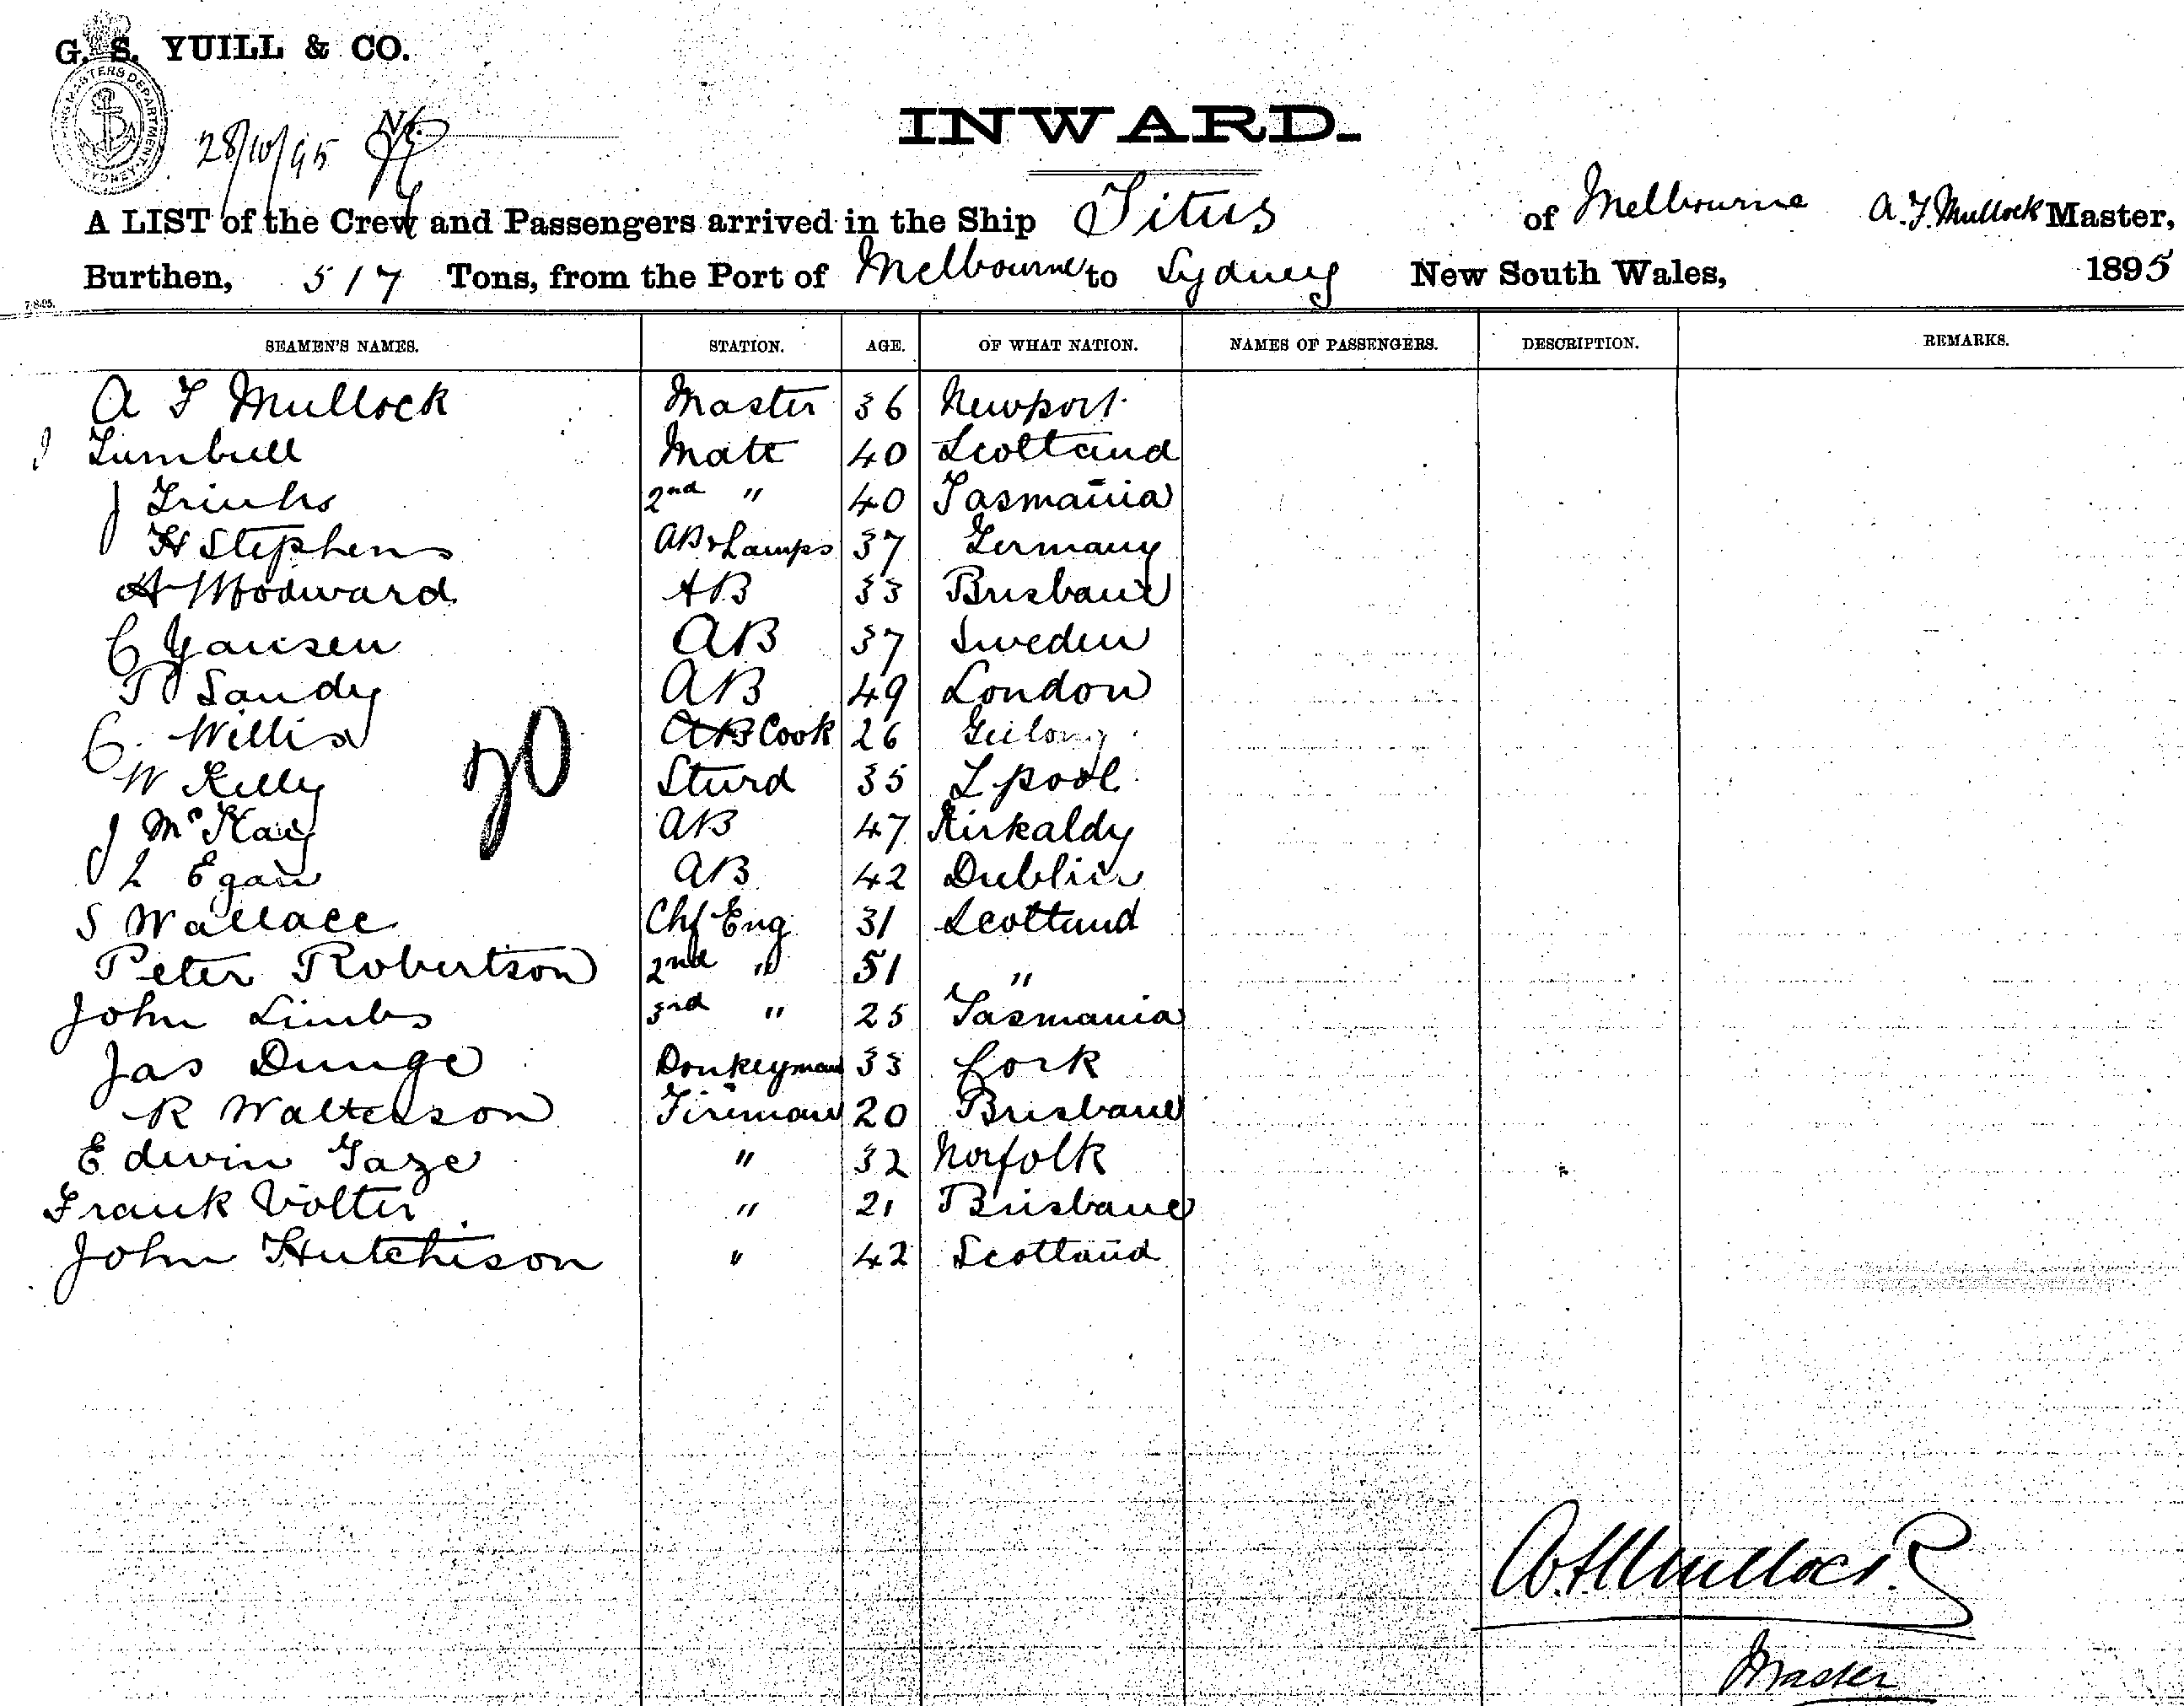 G. S. YUILL & CO.
SHIPPING MASTERS DEPARTMENT SYDNEY
28/10/95
INWARD.
A LIST of the Crew and Passengers arrived in the Ship Titus of Melbourne A. F. Mullock Master,
Burthen, 517 Tons, from the Port of Melbourne to Sydney New South Wales, 1895
7.8.95.
SEAMEN'S NAMES. STATION. AGE. OF WHAT NATION. NAMES OF PASSENGERS. DESCRIPTION. REMARKS.
A F Mullock Master 36 Newport
J Turnbull Mate 40 Scotland
J 2nd " 40 Tasmania
H Stephens AB & Lamps 37 Germany
A Woodward AB 33 Brisbane
C Yansen AB 37 Sweden
T Sandy AB 49 London
C. Willis AB Cook 26 Geelong
W Kelly Sturd 35 Lpool
J McKay AB 47 Kirkaldy
L Egan AB 42 Dublin
S Wallace Chf Eng 31 Scotland
Peter Robertson 2nd " 51 "
John Limbs 3rd " 25 Tasmania
Jas Dunge Donkeyman 33 Cork
R Watterson Fireman 20 Brisbane
Edwin Gaze " 32 Norfolk
Frank Volter " 21 Brisbane
John Hutchison " 42 Scotland
A. F. Mullock
Master